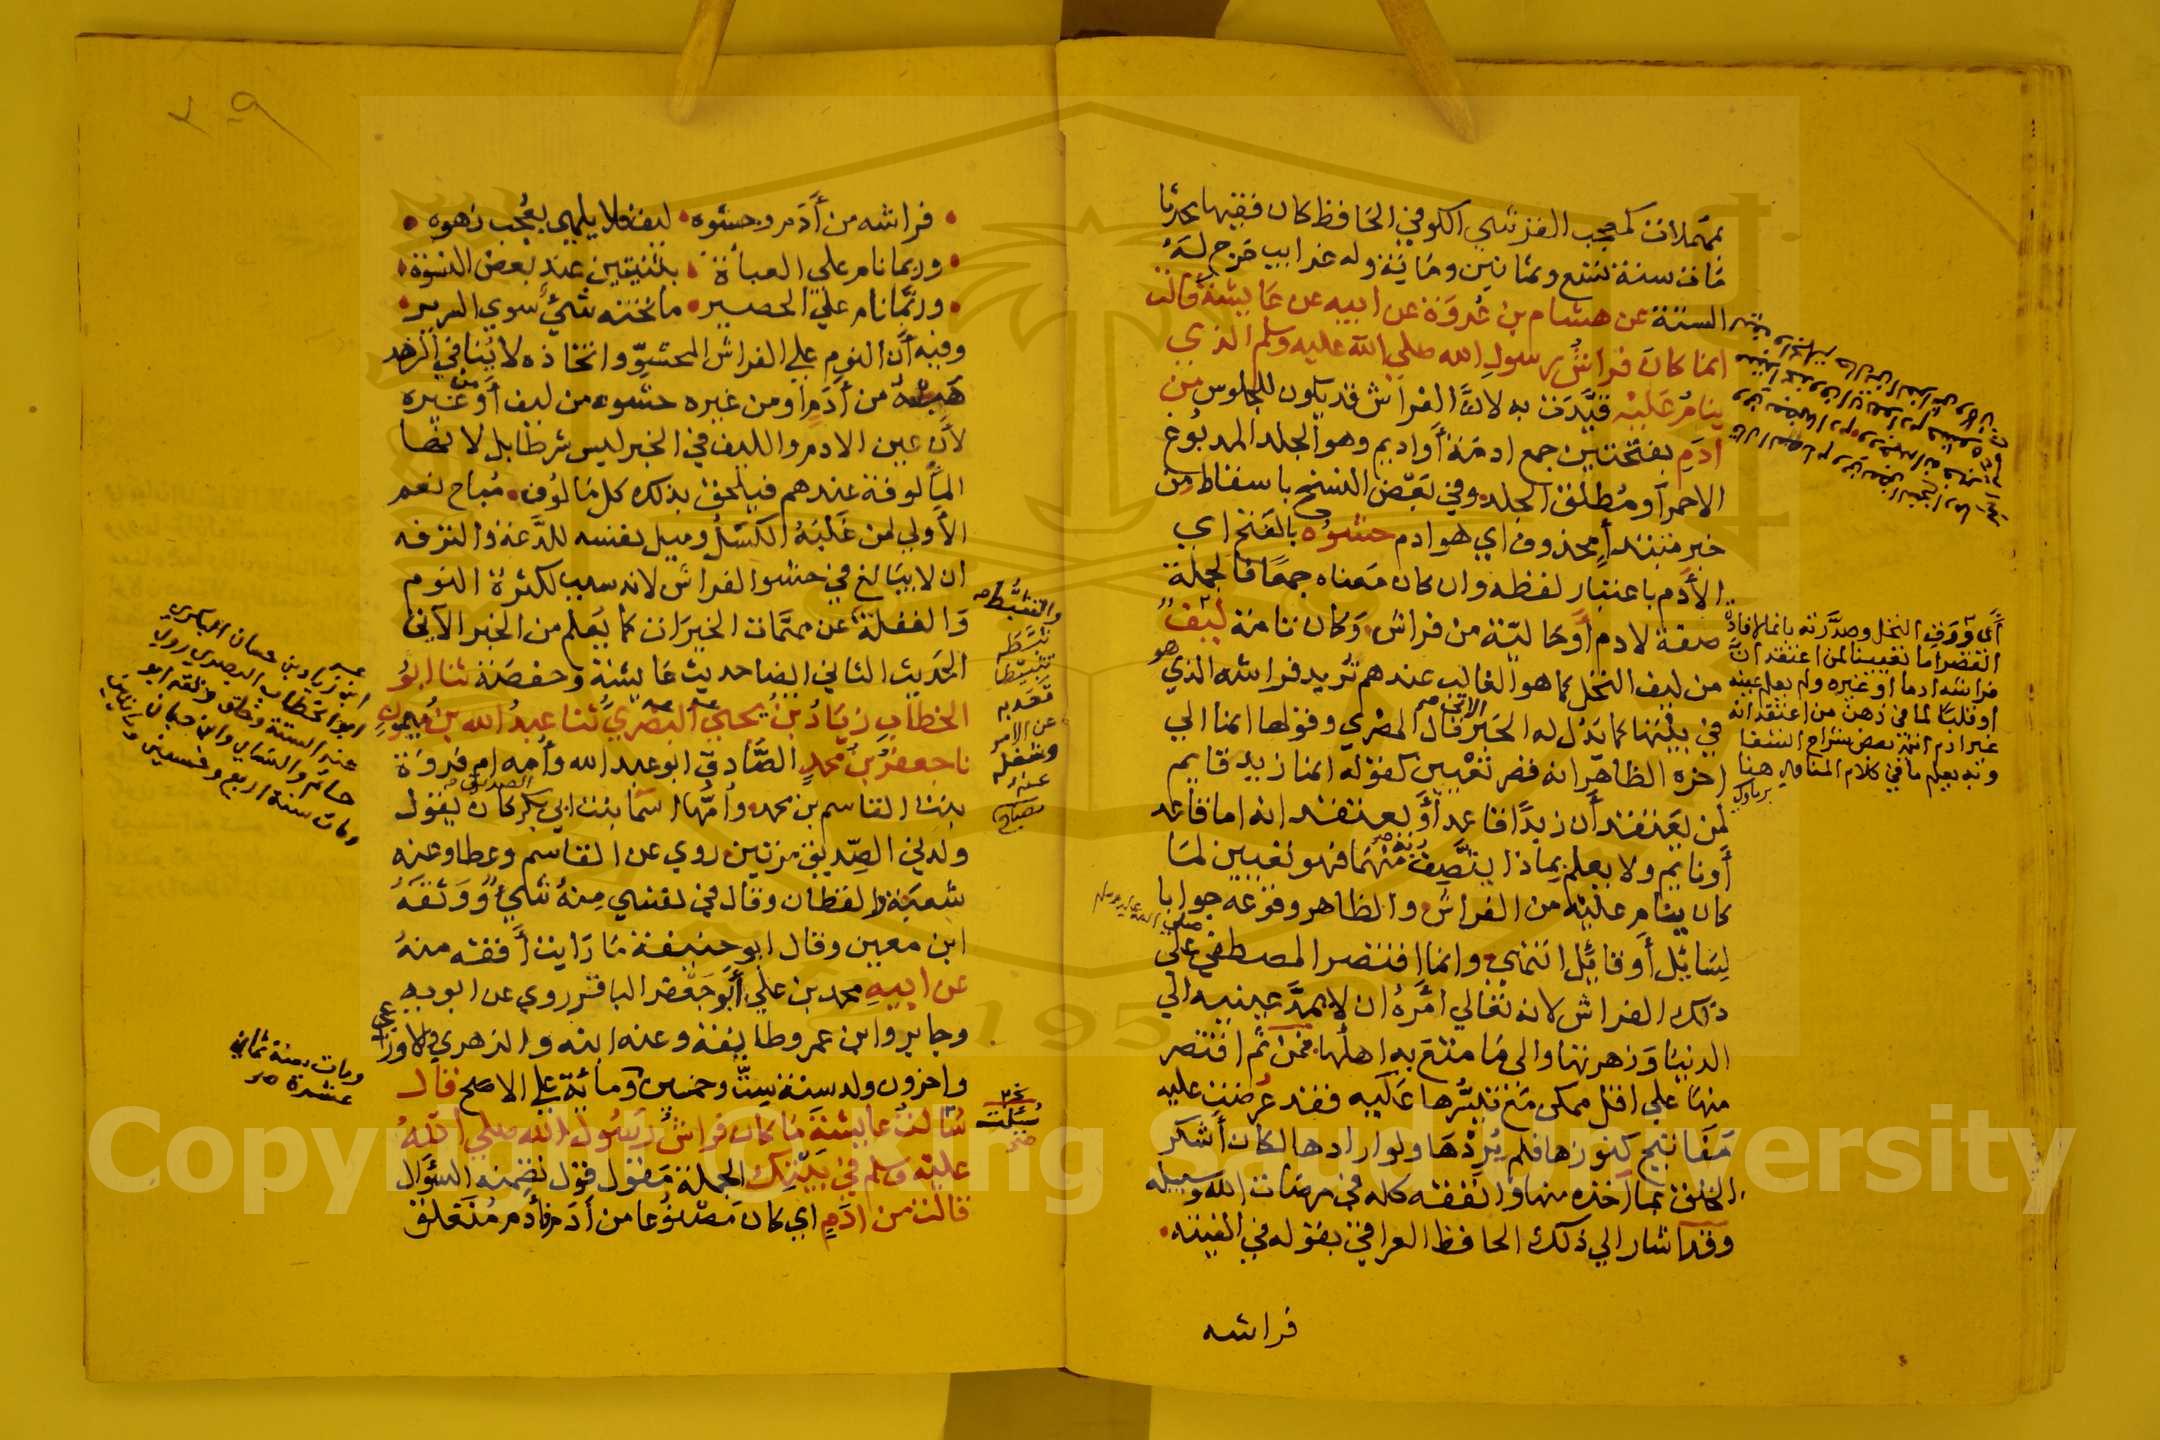 بمهملات كمحب القرشي الكوفي الحافظ كان فقيها محدثا
مات سنة تسع وثمانين ومائة وله غرايب خرج له
الستة عن هشام بن عروة عن ابيه عن عايشة قالت
انما كان فراش رسول الله صلي الله عليه وسلم الذي
ينام عليه قيدت به لان الفراش قد يكون للجلوس من
ادم بفتحتين جمع ادمة أو اديم وهو الجلد المدبوغ
الاحمر او مطلق الجلد وفي بعض النسخ باسقاط من
خبر مبتدأ محذوف اي هو ادم حشوه بالفتح اي
الأدم باعتبار لفظه وان كان معناه جمعا فالجملة
صفة لادم أو حالية من فراش وكان تامة ليف
من ليف النخل كما هو الغالب عندهم تريد فراشه الذي هو
في بيتها كما يدل له الخبر الاتي قال المصري وقولها انما الي
اخره الظاهر انه قصر تعيين كقوله انما زيد قايم
لمن يعتقد أن زيدا قاعد أو يعتقد انه اما قاعد
أو نايم ولا يعلم بماذا يتصف منهما فهو تعيين لما
كان ينام عليه من الفراش والظاهر وقوعه جوابا
لسائل أو قائل انتهي وانما اقتصر المصطفي علي
صلي الله عليه وسلم
ذلك الفراش لانه تعالي امره ان لا يمد عينيه الي
الدنيا وزهرتها والى ما متع به اهلها فمن ثم اقتصر
منها علي اقل ممكن مع تيسرها عليه فقد عرضت عليه
مفاتيح كنوزها فلم يردها ولو ارادها لكان أشكر
الخلق بما أخذه منها وأنفقه كله في مرضات الله وسبيله
وقد اشار الي ذلك الحافظ العراقي بقوله في الفيته
فراشه
أي ورق النخل وصدرته بانما لافادة
القصر اما تعيينا لمن اعتقد ان
فراشه ادما او غيره ولم يعلم عينه
او قلبا لما في ذهن من اعتقد انه
غير ادم انتهي بعض شراح الشفا
وبه يعلم ما في كلام المناوي هنا
فراشه من أدم وحشوه ليف فلا يلهي بعجب زهوه
وربما نام علي العباءة بثنيتين عند بعض النسوة
وربما نام علي الحصير ما تحته شيء سوي السرير
وفيه أن النوم علي الفراش المحشو واتخاذه لا ينافي الزهد
هبه من أدم او من غيره حشوه من ليف أو من غيره
لأن عين الادم والليف في الخبر ليس شرطا بل لانها
المألوفة عندهم فيلحق بذلك كل مألوف مباح نعم
الأولي لمن غلبه الكسل وميل نفسه للدعة والترفه
ان لا يبالغ في حشو الفراش لانه سبب لكثرة النوم
والغفلة عن مهمات الخيرات كما يعلم من الخبر الآتي
الحديث الثاني ايضا حديث عايشة وحفصة ثنا ابو
الخطاب زياد بن يحيي البصري ثنا عبد الله بن ميمون
نا جعفر بن محمد الصادق ابو عبد الله وأمه ام فروة
بنت القاسم بن محمد وأمها اسما بنت ابي بكر الصديق كان يقول
ولدني الصديق مرتين روي عن القاسم وعطا وعنه
شعبة والقطان وقال في نفسي منه شيء ووثقه
ابن معين وقال ابو حنيفة ما رايت أفقه منه
عن ابيه محمد بن علي أبو جعفر الباقر روي عن ابويه
وجابر وابن عمر وطايفة وعنه ابنه والزهري والاوزاعي
واخرون ولد سنة ست وخمسين ومائة علي الاصح قال
سألت عايشة ما كان فراش رسول الله صلي الله
عليه وسلم في بيتك الجملة مقول قول تضمنه السؤال
قالت من ادم اي كان مصنوعا من أدم فأدم متعلق
والتثبط
ثبطه
تثبيطا
قعد به
عن الامر
وشغله
عنه
مصباح
سئلت
ابن زياد بن حسان البكري
ابو الخطاب البصري روي
عنه الستة وخلق وثقه ابو
حاتم والنساي وابن حبان
ومات سنة اربع وخمسين ومائتين
ومات سنة ثمان
عشرة
٢٩
Copyright © King Saud University
195